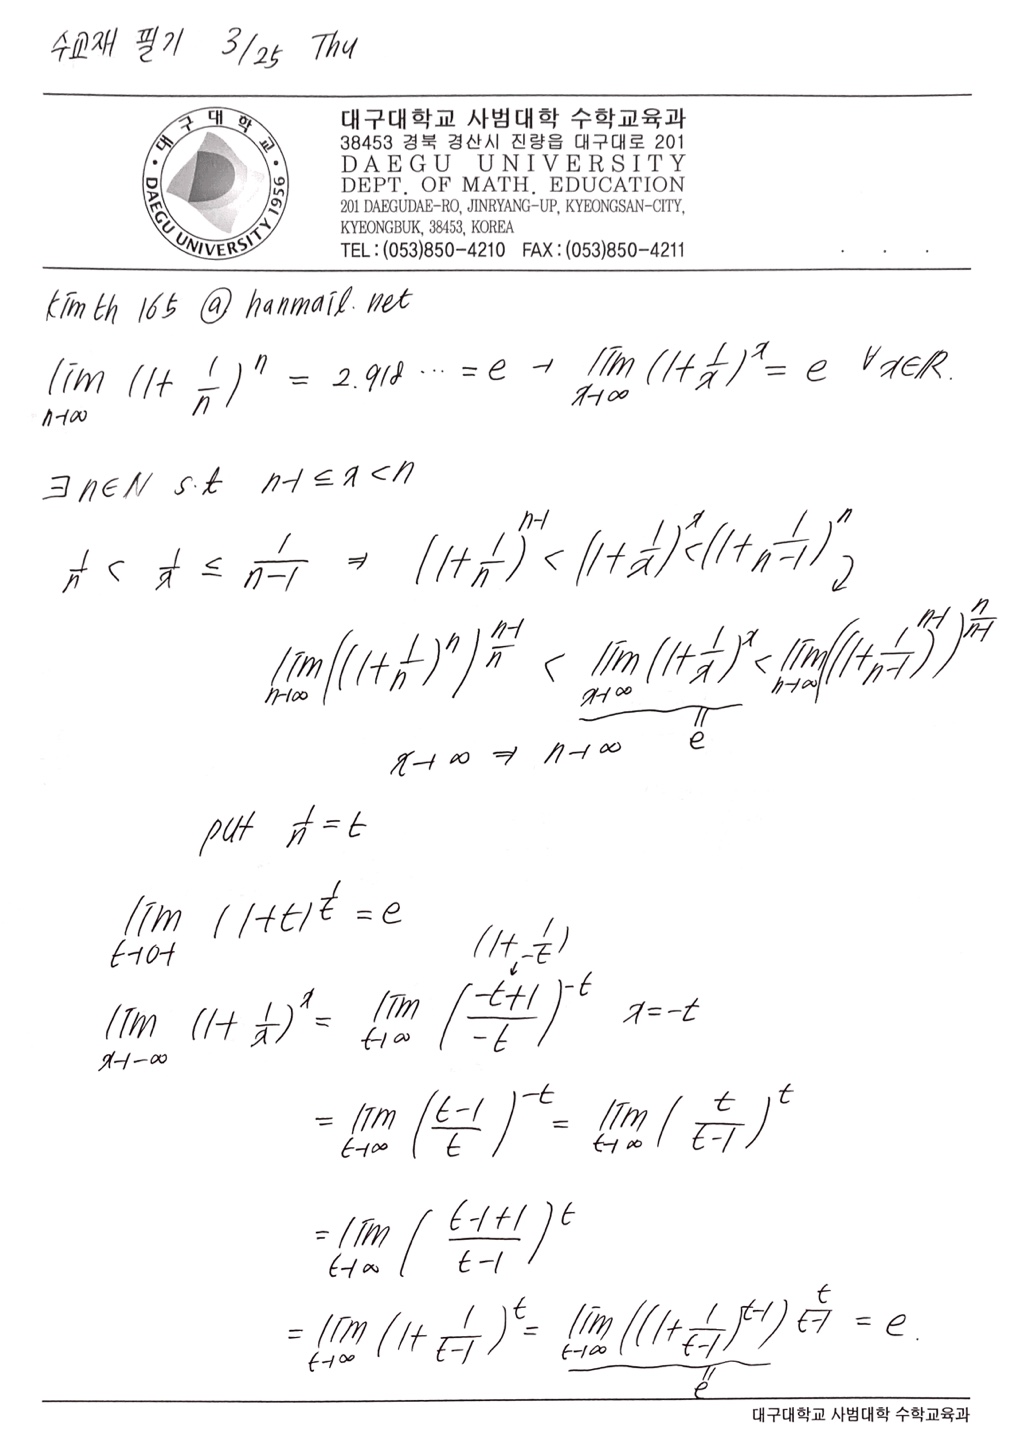 수교재 필기 3/25 Thu
대구대학교
DAEGU UNIVERSITY 1956
대구대학교 사범대학 수학교육과
38453 경북 경산시 진량읍 대구대로 201
DAEGU UNIVERSITY
DEPT. OF MATH. EDUCATION
201 DAEGUDAE-RO, JINRYANG-UP, KYEONGSAN-CITY,
KYEONGBUK, 38453, KOREA
TEL:(053)850-4210 FAX:(053)850-4211
. . .
kimth 165 @ hanmail.net
lim_{n→∞} (1+ 1/n)^n = 2.918 ⋯ = e → lim_{x→∞} (1+ 1/x)^x = e ∀x∈R.
∃n∈N s.t n-1 ≤ x < n
1/n < 1/x ≤ 1/(n-1) ⇒ (1+ 1/n)^{n-1} < (1+ 1/x)^x < (1+ 1/(n-1))^n
lim_{n→∞} ((1+ 1/n)^n)^{(n-1)/n} < lim_{x→∞} (1+ 1/x)^x < lim_{n→∞} ((1+ 1/(n-1))^{n-1})^{n/(n-1)}
x→∞ ⇒ n→∞ = e
put 1/n = t
lim_{t→0+} (1+t)^{1/t} = e
(1+ 1/-t)
lim_{x→-∞} (1+ 1/x)^x = lim_{t→∞} ((-t+1)/-t)^{-t} x=-t
= lim_{t→∞} ((t-1)/t)^{-t} = lim_{t→∞} (t/(t-1))^t
= lim_{t→∞} ((t-1+1)/(t-1))^t
= lim_{t→∞} (1+ 1/(t-1))^t = lim_{t→∞} ((1+ 1/(t-1))^{t-1})^{t/(t-1)} = e.
= e
대구대학교 사범대학 수학교육과